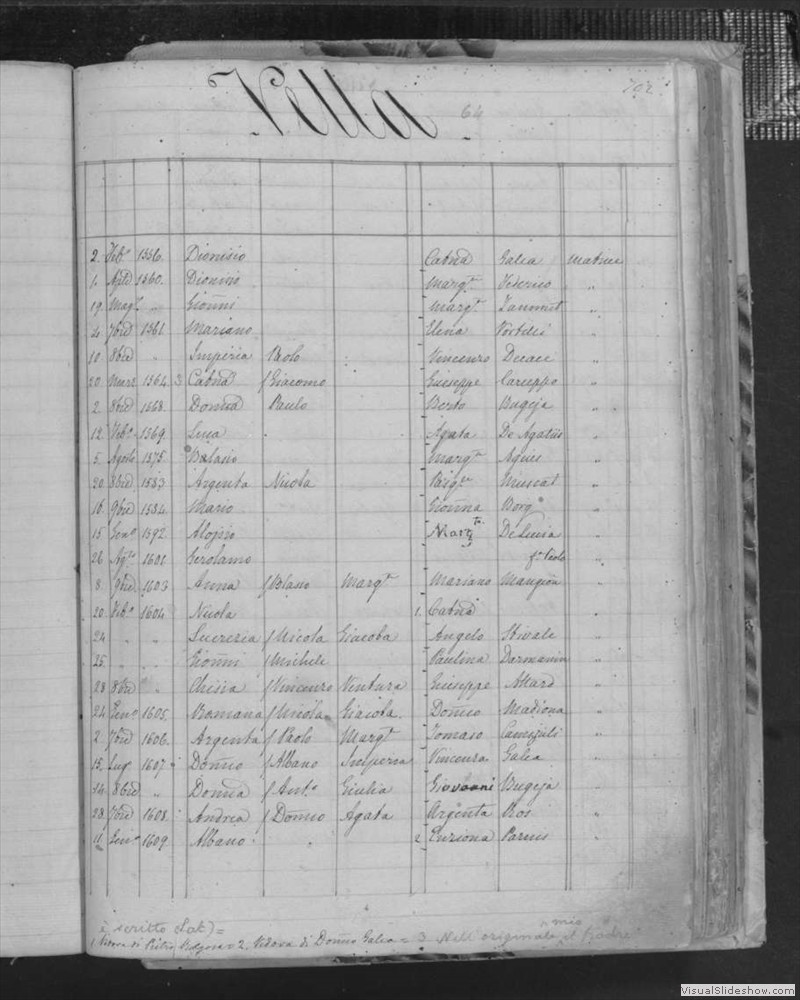 Vella 64 702
2. Feb.º 1556. Dionisio Catnã Galea Matrice
1. Aple 1560. Dionisio Marg.ta Federico "
19. Mag.º " Gioñni Marg.ta Zammit "
4 7bre 1561. Mariano Elena "
10. 8bre " Imperia Paolo Vincenzo "
20. Marz 1564 3 Catnã f Giacomo Giuseppe Caruppo "
2. 8bre 1568. Domcã Paulo Berto Bugeja "
12. Feb.º 1569. Luca Agata De Agatiis "
5. Agosto 1575. Blasio Marg.ta Agius "
20. 8bre 1583 Argenta Nicola Pasq.le Muscat "
16. 9bre 1584. Mario Gioñna Borg "
15. Gen.º 1592. Aloisio Marg.ta De Lucia "
26. Ag.to 1601. Gerolamo f.ª Paolo "
8. 9bre 1603 Anna f Blasio Marg.ta Mariano Mangion "
20. Feb.º 1604 Nicola 1. Catnã "
24 " " Lucrezia f Nicola Giacoba Angelo Stivale "
25. " " Gioñni f Michele Paulina Darmanin "
28 8bre " Chisia f Vincenzo Ventura Giuseppe Attard "
24 Gen.º 1605. Romana f Nicola Giacoba. Domco Madiona "
2. 7bre 1606. Argenta f Paolo Marg.ta Tomaso Camigili "
15. Lug.º 1607. Domco f Albano Imperia Vincenza Galea "
14 8bre " Domcã f Ant.º Giulia Giovanni Bugeja "
28 7bre 1608. Andrea f Domco Agata Argenta Ros "
11 Gen.º 1609. Albano 2 Enziona "
è scritto Lat) =
1 Vedova di Pietro = 2. Vedova di Domco Galea = 3 Nell' originale il Padre